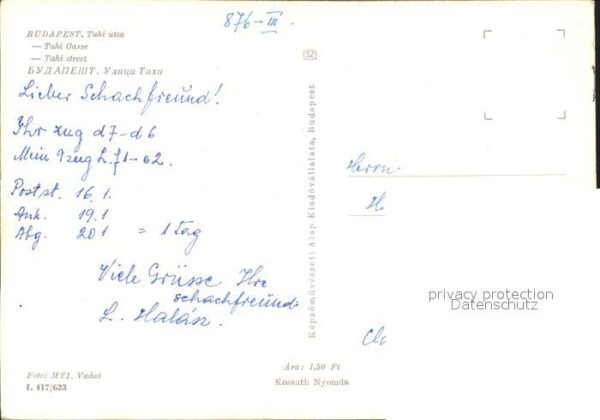 876-III.
BUDAPEST. Tahi utca
— Tahi Gasse
— Tahi street
БУДАПЕШТ. Улица Тахи
Lieber Schachfreund!
Ihr zug d7-d6
Mein 9zug L.f1-e2.
Postst. 16.1.
Ank. 19.1
Abg. 20.1 = 1 Tag
Viele Grüsse Ihr
schachfreund
L. Halász.
Foto: MTI, Vadas
I. 417/623
SZ
Képzőművészeti Alap Kiadóvállalata, Budapest
Ára: 1,50 Ft
Kossuth Nyomda
Herrn
privacy protection
Datenschutz